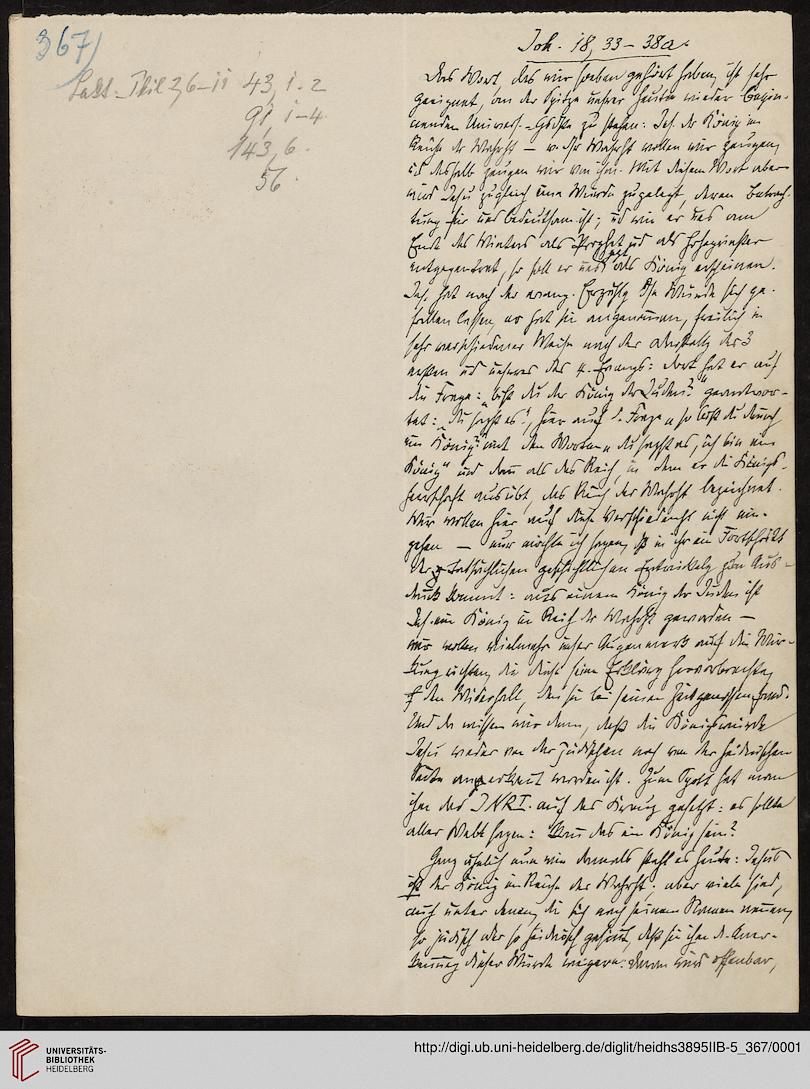 367)
Lekt. Phil 2,6–11 43, 1-2
91, 1-4
143, 6.
56.
Joh. 18, 33–38a.
Das Wort, das wir soeben gehört haben, ist sehr
geeignet, an der Spitze unsrer heute wieder begin-
nenden Univers.-Gdste zu stehen: Jes. der König im
Reiche der Wahrht — u. der Wahrht wollen wir zeugen,
ud deshalb zeugen wir von ihm. Mit diesem Wort aber
wird Jesu zugleich eine Würde zugelegt, deren Betrach-
tung für uns bedeutsam ist; ud wie er uns am
Ende des Winters als Prophet ud als Hohepriester
entgegentrat, so soll er uns jetzt als König erscheinen.
Jes. hat nach der evang. Erzählg diese Würde sich ge-
fallen lassen, er hat sie angenommen, freilich in
sehr verschiedener Weise nach der der 3
ersten ud unseres des 4. Evangs: dort hat er auf
die Frage: „bist du der König der Juden?" geantwor-
tet: „du sagst es", hier auf d. Frage „so bist du dennoch
ein König?" mit den Worten „du sagst es, ich bin ein
König" und dann als das Reich in dem er die Königs-
herrschaft ausübt, das Reich der Wahrht bezeichnet.
Wir wollen hier auf diese Verschiedenht nicht ein-
gehen — nur möchte ich sagen, dß in ihr ein Fortschritt
der thatsächlichen geschichtlichen Entwickelg zum Aus-
druck kommt: aus einem König der Juden ist
Jes. ein König im Reich der Wahrht geworden —
wir wollen vielmehr unser Augenmerk auf die Wir-
kung richten, die diese seine Erklärung hervorbrachte,
den Widerhall, den sie bei seinen Zeitgenossen fand.
Und da wissen wir denn, daß die Königswürde
Jesu weder von der jüdischen noch von der heidnischen
Seite anerkannt worden ist. Zum Spott hat man
ihm das INRI. auf das Kreuz gesetzt: es sollte
aller Welt sagen: Kann das ein König sein?
Ganz ähnlich nun wie damals steht es heute: Jesus
ist der König im Reiche der Wahrht; aber viele sind,
auch unter denen, die sich nach seinem Namen nennen,
so jüdisch oder so heidnisch gesinnt, daß sie ihm d. Aner-
kennung dieser Würde weigern: denen wird offenbar,
UNIVERSITÄTS-
BIBLIOTHEK
HEIDELBERG
http://digi.ub.uni-heidelberg.de/diglit/heidhs3895IIB-5_367/0001